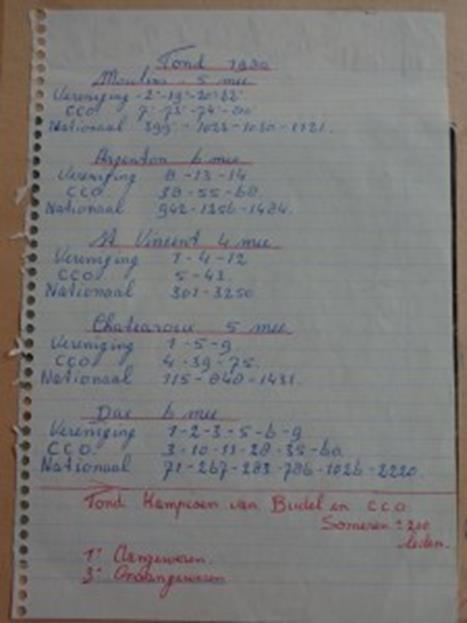 Fond 1990
Moulins - 5 mee
Vereniging - 2 - 19 - 20 -
CCO 7 - 73 - 74 -
Nationaal 399 - 1023 - 1030 - 1121.
Argenton 6 mee
Vereniging 8 - 13 - 14
CCO 38 - 55 - 68.
Nationaal 942 - 1356 - 1484.
St Vincent 4 mee
Vereniging 1 - 4 - 12
CCO 5 - 43.
Nationaal 301 - 3250
Chateauroux 5 mee
Vereniging 1 - 5 - 9
CCO 4 - 39 - 75.
Nationaal 115 - 840 - 1431.
Dax 6 mee
Vereniging 1 - 2 - 3 - 5 - 6 - 9
CCO. 3 - 10 - 11 - 28 - 35 - 60
Nationaal 71 - 267 - 283 - 786 - 1026 - 2220.
Fond Kampioen van Budel en C.C.O.
Someren ± 200
leden.
1e Aangewezen.
3e Onaangewezen